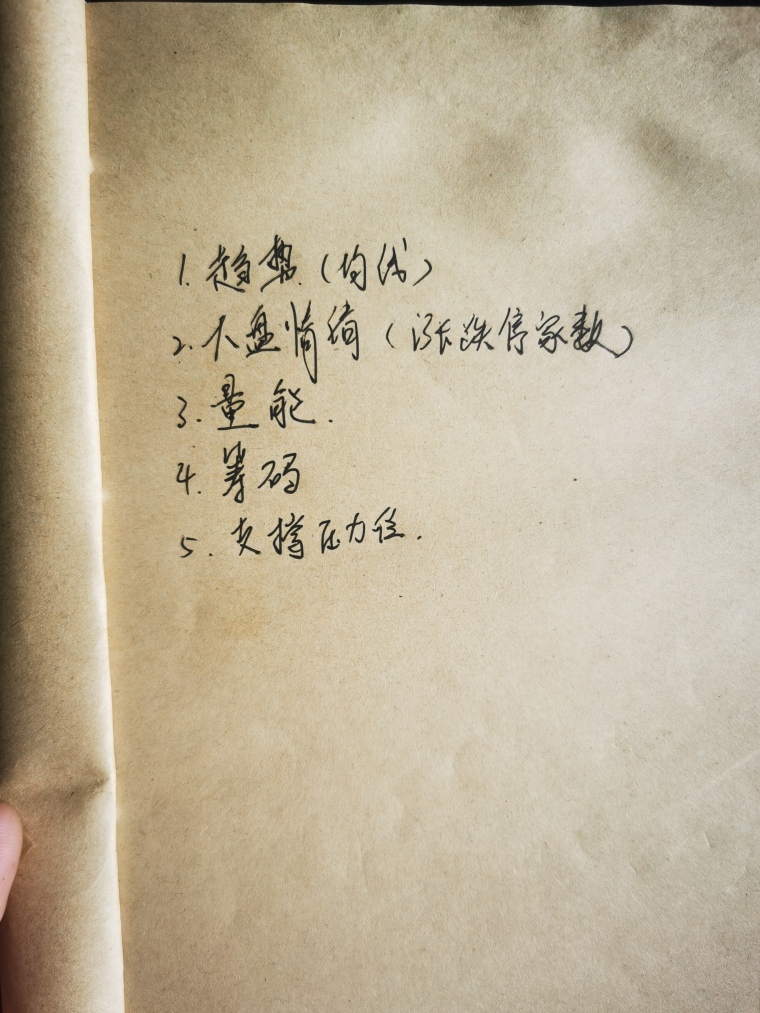 1. 趋势（均线）
2. 大盘情绪（涨跌停家数）
3. 量能.
4. 筹码
5. 支撑压力位.